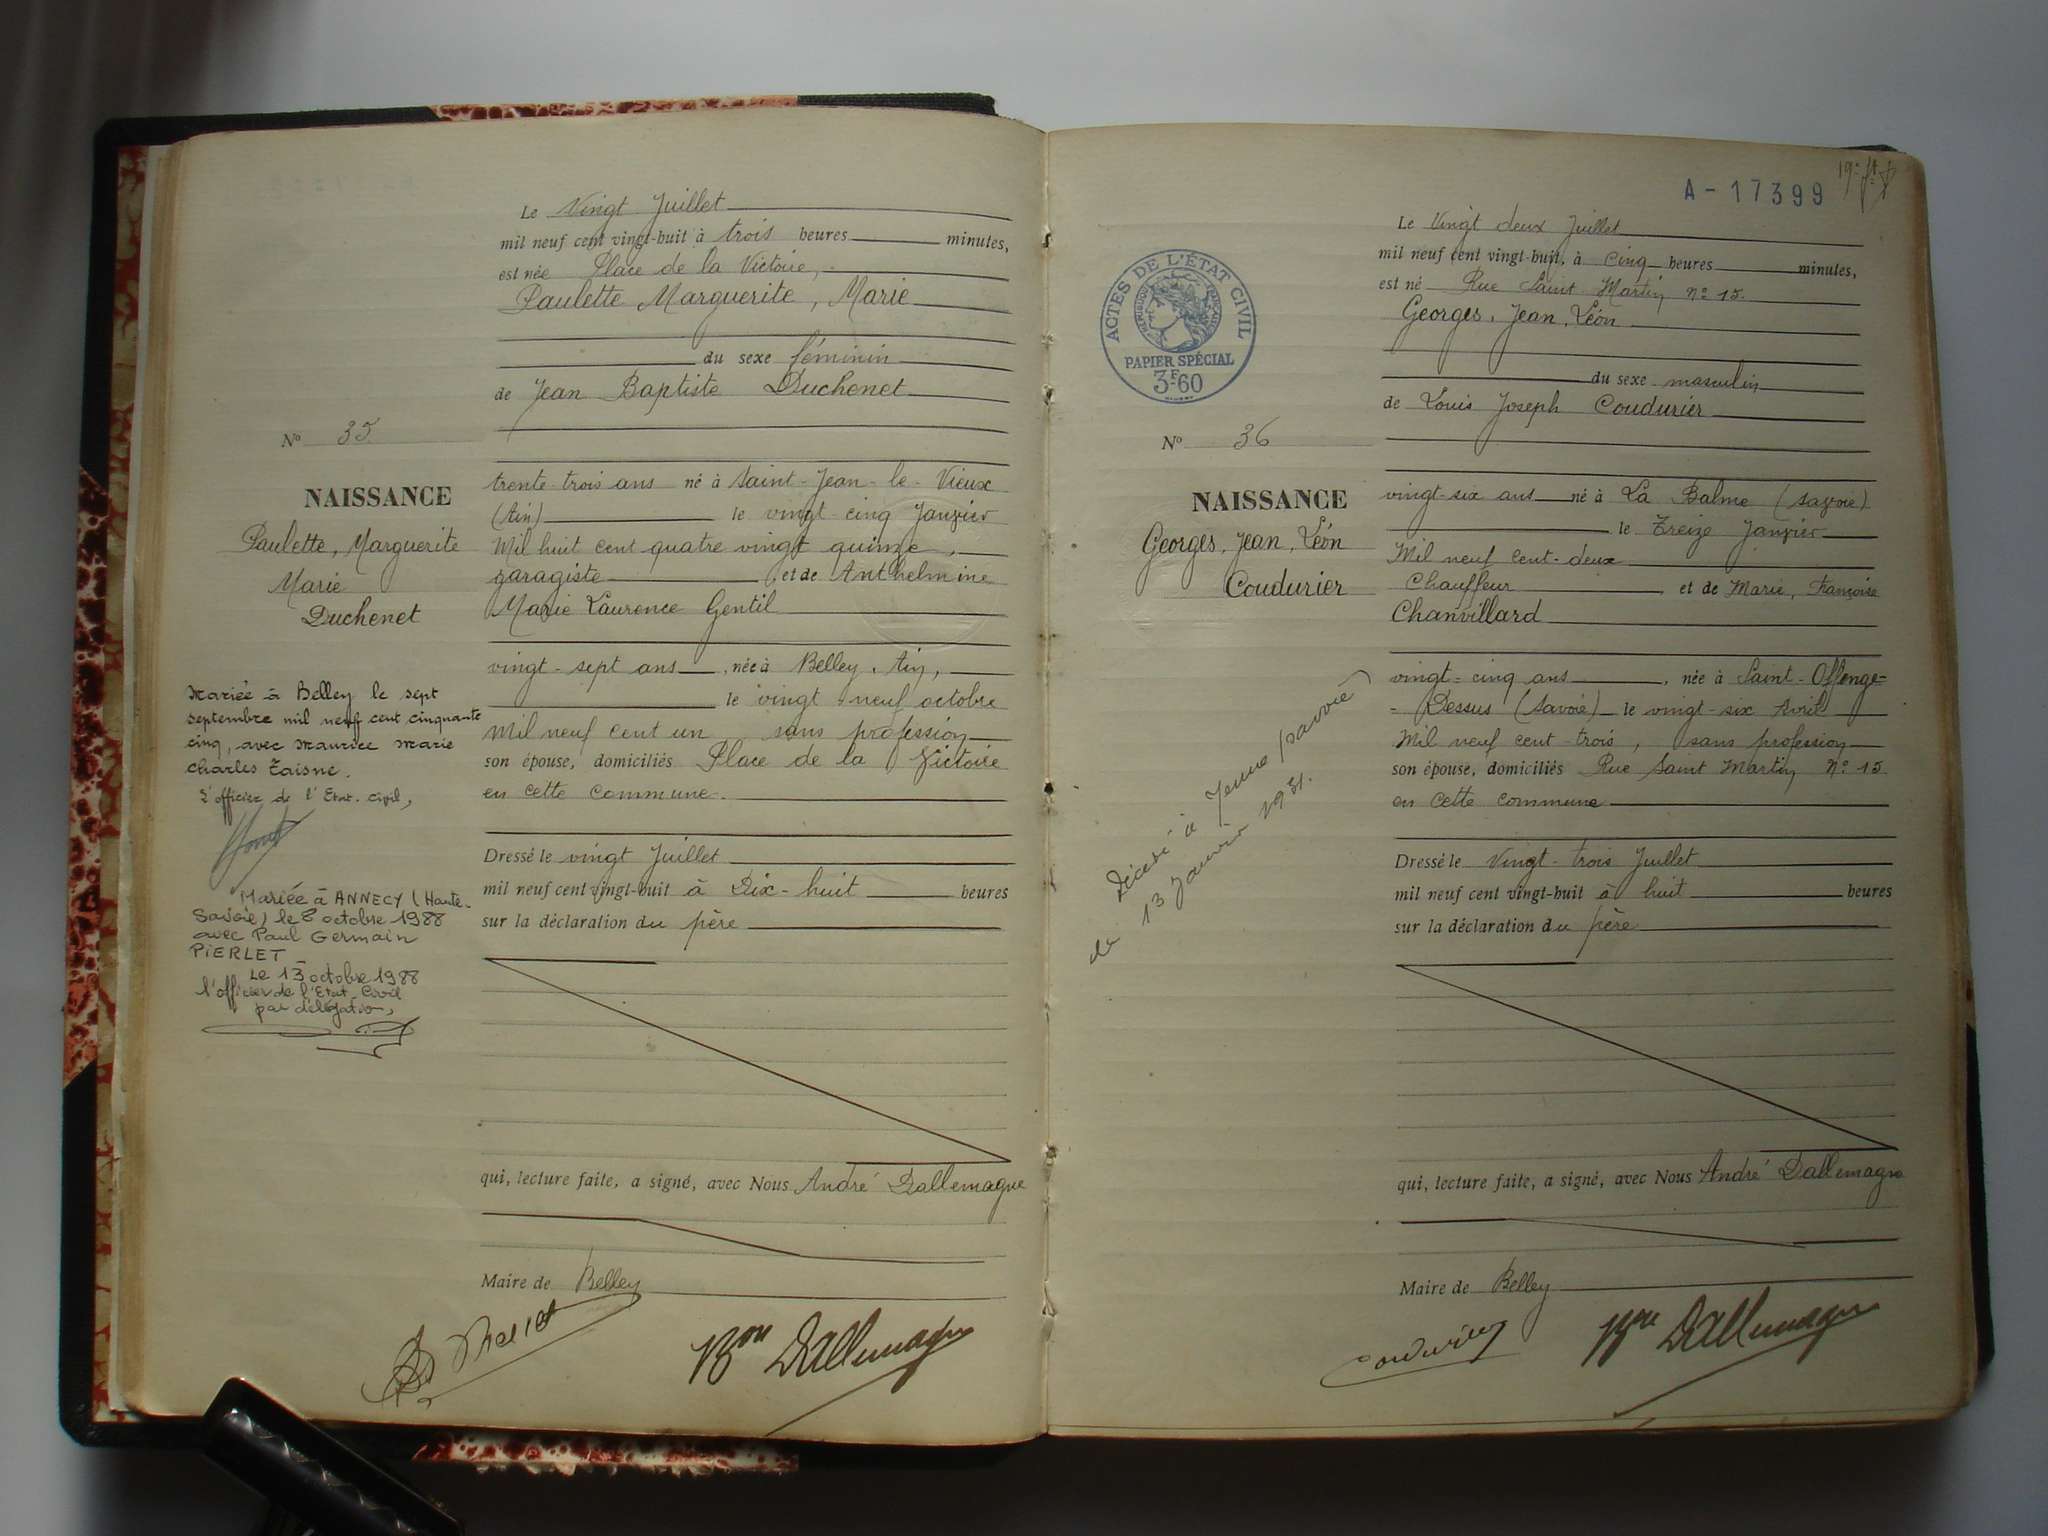 Le Vingt Juillet
mil neuf cent vingt-huit à trois heures minutes,
est née Place de la Victoire,
Paulette Marguerite, Marie
du sexe féminin
de Jean Baptiste Duchenet
No 35
NAISSANCE
Paulette, Marguerite
Marie
Duchenet
trente-trois ans né à Saint-Jean-le-Vieux
(Ain) le vingt-cinq Janvier
Mil huit cent quatre vingt quinze,
garagiste, et de Anthelmine
Marie Laurence Gentil
vingt-sept ans, née à Belley, Ain,
le vingt neuf octobre
Mil neuf cent un, sans profession
son épouse, domiciliés Place de la Victoire
en cette commune.
Dressé le vingt Juillet
mil neuf cent vingt-huit à Dix-huit heures
sur la déclaration du père
qui, lecture faite, a signé, avec Nous André Dallemagne
Maire de Belley
Bon Dallemagne
Mariée à Belley le sept
septembre mil neuf cent cinquante
cinq, avec Maurice Marie
Charles Taisne.
L'officier de l'Etat-civil,
Mariée à ANNECY (Haute-
Savoie) le 8 octobre 1988
avec Paul Germain
PIERLET
Le 13 octobre 1988
l'officier de l'Etat Civil
par délégation,
A-17399
ACTES DE L'ÉTAT CIVIL
RÉPUBLIQUE FRANÇAISE
PAPIER SPÉCIAL
3F60
Le Vingt deux Juillet
mil neuf cent vingt-huit, à cinq heures minutes,
est né Rue Saint Martin No 15
Georges, Jean, Léon
du sexe masculin
de Louis Joseph Coudurier
No 36
NAISSANCE
Georges, Jean, Léon
Coudurier
vingt-six ans né à La Balme (Savoie)
le Treize Janvier
Mil neuf cent-deux
Chauffeur, et de Marie, Françoise
Chanvillard
vingt-cinq ans, née à Saint-Offenge-
-Dessus (Savoie) le vingt-six Avril
Mil neuf cent-trois, sans profession
son épouse, domiciliés Rue Saint Martin No 15
en cette commune
Dressé le Vingt-trois Juillet
mil neuf cent vingt-huit à huit heures
sur la déclaration du père
qui, lecture faite, a signé, avec Nous André Dallemagne
Maire de Belley
Coudurier
Bon Dallemagne
Décédé à Yenne (Savoie)
le 13 Janvier 1931.